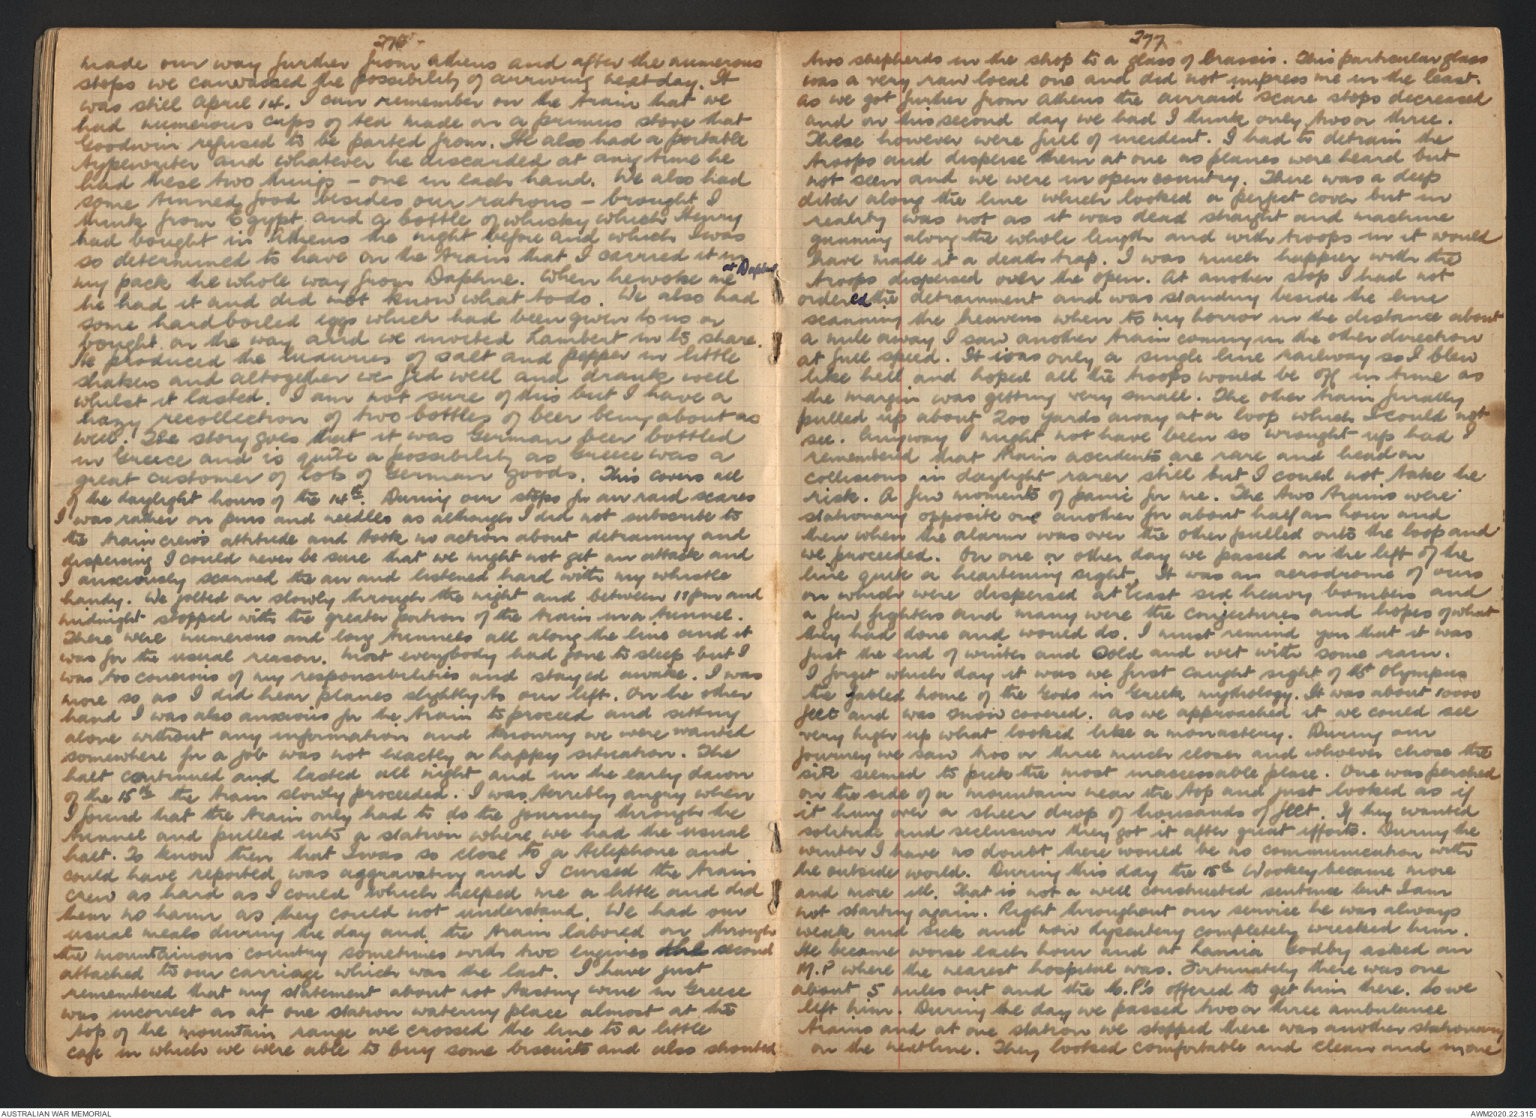 276 -
made our way further from Athens and after the numerous
stops we canvassed the possibility of arriving next day. It
was still April 14. I can remember on the train that we
had numerous cups of tea made on a primus stove that
Goodwin refused to be parted from. He also had a portable
typewriter and whatever he discarded at any time he
had these two things - one in each hand. We also had
some tinned food besides our rations - brought I
think from Egypt and a bottle of whisky which Henry
had bought in Athens the night before and which I was
so determined to have on the train that I carried it in
my pack the whole way from Daphne. When he woke me at Daphne
he had it and did not know what to do. We also had
some hardboiled eggs which had been given to us or
bought on the way and we invited Lambert in to share.
He produced the luxuries of salt and pepper in little
shakers and altogether we fed well and drank well
whilst it lasted. I am not sure of this but I have a
hazy recollection of two bottles of beer being about as
well. The story goes that it was German beer bottled
in Greece and is quite a possibility as Greece was a
great customer of lots of German goods. This covers all
of the daylight hours of the 14th. During our stops for air raid scares
I was rather on pins and needles as although I did not subscribe to
the train crew's attitude and took no action about detraining and
dispersing I could never be sure that we might not get an attack and
I anxiously scanned the air and listened hard with my whistle
handy. We jolted on slowly through the night and between 11 pm and
midnight stopped with the greater portion of the train in a tunnel.
There were numerous and long tunnels all along the line and it
was for the usual reason. Most everybody had gone to sleep but I
was too conscious of my responsibilities and stayed awake. I was
more so as I did hear planes slightly to our left. On the other
hand I was also anxious for the train to proceed and sitting
alone without any information and knowing we were wanted
somewhere for a job was not exactly a happy situation. The
halt continued and lasted all night and in the early dawn
of the 15th the train slowly proceeded. I was terribly angry when
I found that the train only had to do the journey through the
tunnel and pulled into a station where we had the usual
halt. To know then that I was so close to a telephone and
could have reported was aggravating and I cursed the train
crew as hard as I could which helped me a little and did
them no harm as they could not understand. We had our
usual meals during the day and the train labored on through
the mountainous country sometimes with two engines the second
attached to our carriage which was the last. I have just
remembered that my statement about not tasting wine in Greece
was incorrect as at one station watering place almost at the
top of the mountain range we crossed the line to a little
cafe in which we were able to buy some biscuits and also shouted
277
two shepherds in the shop to a glass of Crassis. This particular glass
was a very raw local one and did not impress me in the least.
As we got further from Athens the airraid scare stops decreased
and on this second day we had I think only two or three.
These however were full of incident. I had to detrain the
troops and disperse them at one as planes were heard but
not seen and we were in open country. There was a deep
ditch along the line which looked a perfect cover but in
reality was not as it was dead straight and machine
gunning along the whole length and with troops in it would
have made it a death trap. I was much happier with the
troops dispersed over the open. At another stop I had not
ordered the detrainment and was standing beside the line
scanning the heavens when to my horror in the distance about
a mile away I saw another train coming in the other direction
at full speed. It was only a single line railway so I blew
like hell and hoped all the troops would be off in time as
the margin was getting very small. The other train finally
pulled up about 200 yards away at a loop which I could not
see. Anyway I might not have been so wrought up had I
remembered that train accidents are rare and head on
collisions in daylight rarer still but I could not take the
risk. A few moments of panic for me. The two trains were
stationary opposite one another for about half an hour and
then when the alarm was over the other pulled onto the loop and
we proceeded. On one or other day we passed on the left of the
line quite a heartening sight. It was an aerodrome of ours
on which were dispersed at least six heavy bombers and
a few fighters and many were the conjectures and hopes of what
they had done and would do. I must remind you that it was
just the end of winter and cold and wet with some rain.
I forget which day it was we first caught sight of Mt Olympus
the fabled home of the Gods in Greek mythology. It was about 10000
feet and was snow covered. As we approached it we could see
very high up what looked like a monastery. During our
journey we saw two or three much closer and whoever chose the
site seemed to pick the most inaccessable place. One was perched
on the side of a mountain near the top and just looked as if
it hung over a sheer drop of thousands of feet. If they wanted
solitude and seclusion they got it after great efforts. During the
winter I have no doubt there would be no communication with
the outside world. During this day the 15th Wookey became more
and more ill. That is not a well constructed sentence but I am
not starting again. Right throughout our service he was always
weak and sick and now dysentery completely wrecked him.
He became worse each hour and at Lamia Godby asked an
M.P where the nearest hospital was. Fortunately there was one
about 5 miles out and the M.P's offered to get him there. So we
left him. During the day we passed two or three ambulance
trains and at one station we stopped there was another stationary
on the next line. They looked comfortable and clean and more
AUSTRALIAN WAR MEMORIAL
AWM2020.22.315